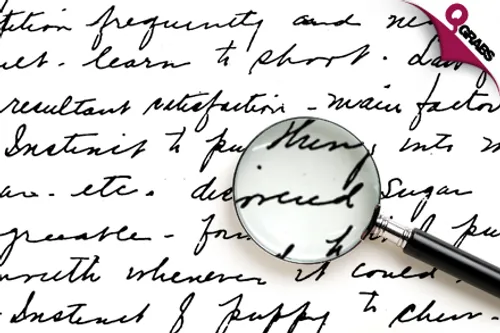 tition frequently and ne
QGRABS
uet. learn to shoot. Law
resultant satisfaction - main factor
Instinct to pu thing into m
ar. etc. discovered Sugar
greeable - for pu
mouth whenever it could.
Instinct of puppy to chew.